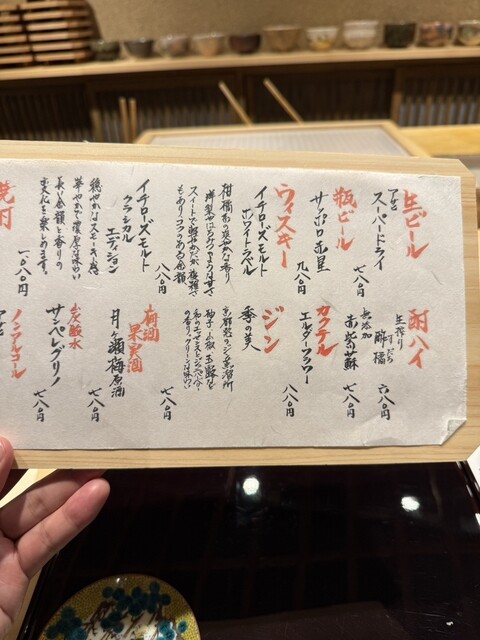 生ビール
アサヒ
スーパードライ
七八〇円
瓶ビール
サッポロ赤星
九八〇円
ウィスキー
イチローズモルト
ホワイトラベル
柑橘系の爽やかな香り
スイートで軽やかだが、複雑さ
もありコクのある余韻
八八〇円
イチローズモルト
クラシカル
エディション
穏やかなスモーキー感
華やかで濃厚な味わい
長い余韻と香りの
変化を楽しめます。
一〇八〇円
酎ハイ
生搾り
酢橘
すだち
六八〇円
無添加
赤紫蘇
七八〇円
カクテル
エルダーフラワー
八八〇円
ジン
季の美
京都発のジン蒸溜所
柚子、山椒、玉露など
の香り。クリーンな味わい
七八〇円
梅酒
果実酒
月ヶ瀬梅原酒
七八〇円
炭酸水
サンペレグリノ
七八〇円
ノンアルコール
アサヒ